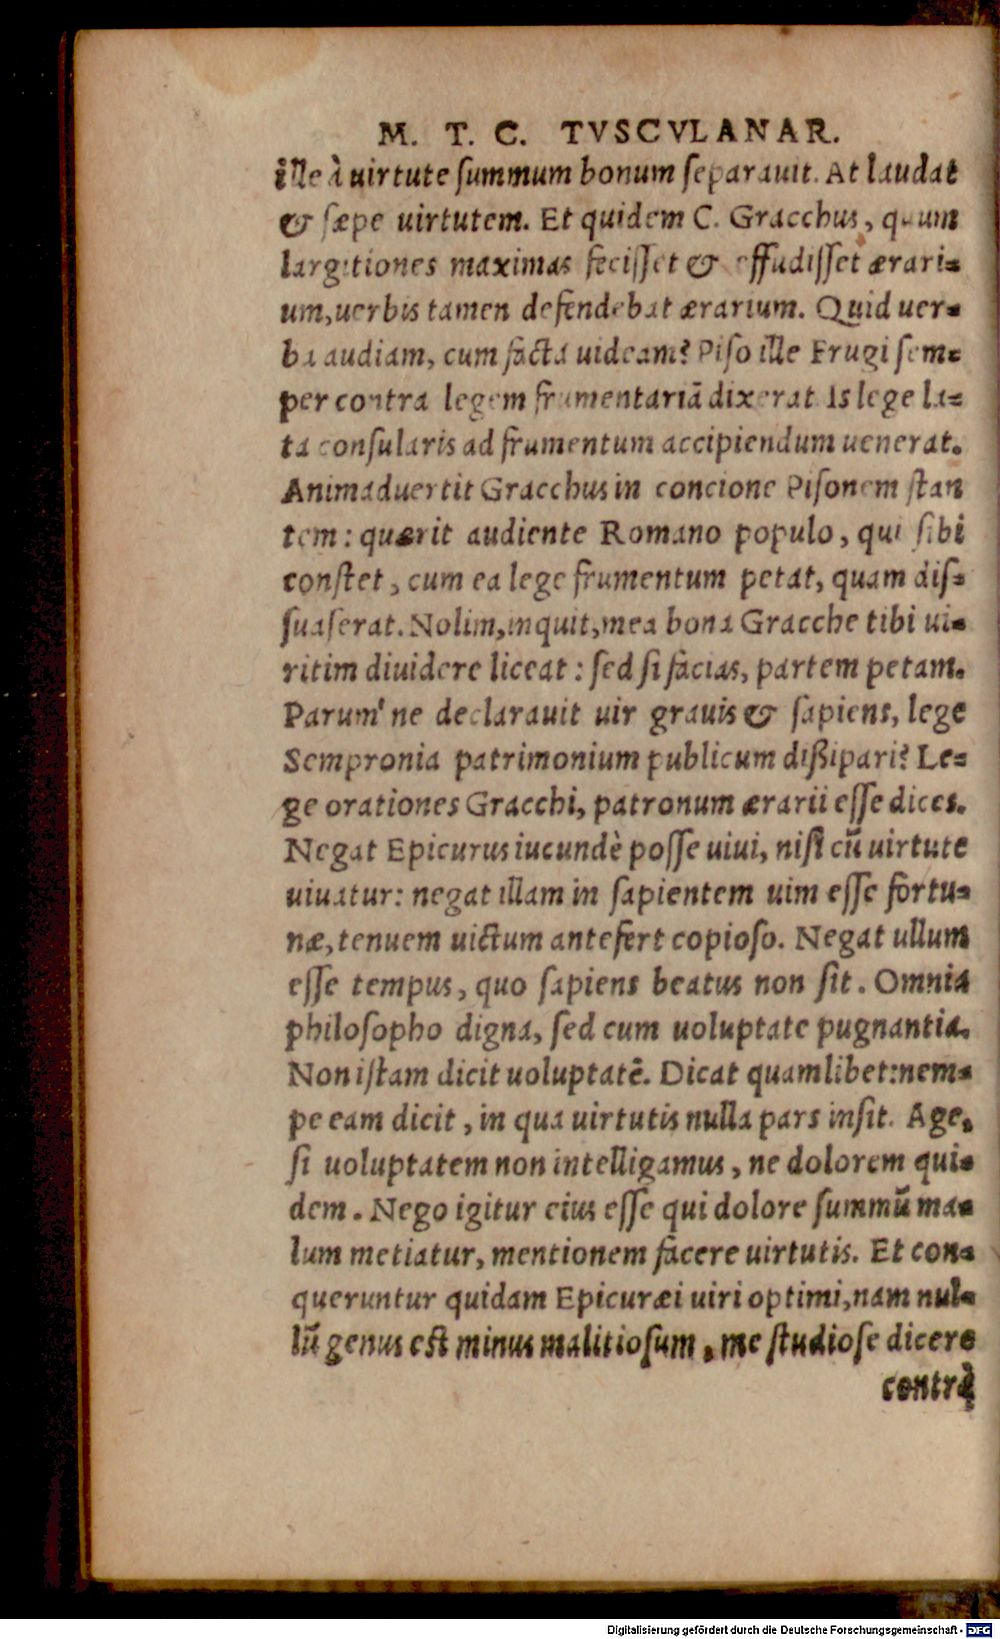 M. T. C. TVSCVLANAR.
ille à uirtute summum bonum separauit. At laudat
& sæpe uirtutem. Et quidem C. Gracchus, quum
largitiones maximas fecisset & effudisset ærari-
um, uerbis tamen defendebat ærarium. Quid uer-
ba audiam, cum facta uideam? Piso ille Frugi sem-
per contra legem frumentariā dixerat. Is lege la-
ta consularis ad frumentum accipiendum uenerat.
Animaduertit Gracchus in concione Pisonem stan
tem: quærit audiente Romano populo, qui sibi
constet, cum ea lege frumentum petat, quam dis-
suaserat. Nolim, inquit, mea bona Gracche tibi ui-
ritim diuidere liceat: sed si facias, partem petam.
Parum'ne declarauit uir grauis & sapiens, lege
Sempronia patrimonium publicum dißipari? Le-
ge orationes Gracchi, patronum ærarii esse dices.
Negat Epicurus iucundè posse uiui, nisi cū uirtute
uiuatur: negat illam in sapientem uim esse fortu-
næ, tenuem uictum antefert copioso. Negat ullum
esse tempus, quo sapiens beatus non sit. Omnia
philosopho digna, sed cum uoluptate pugnantia.
Non istam dicit uoluptatē. Dicat quamlibet: nem-
pe eam dicit, in qua uirtutis nulla pars insit. Age,
si uoluptatem non intelligamus, ne dolorem qui-
dem. Nego igitur eius esse qui dolore summū ma-
lum metiatur, mentionem facere uirtutis. Et con-
queruntur quidam Epicuræi uiri optimi, nam nul-
lū genus est minus malitiosum, me studiose dicere
contrà
Digitalisierung gefördert durch die Deutsche Forschungsgemeinschaft - DFG